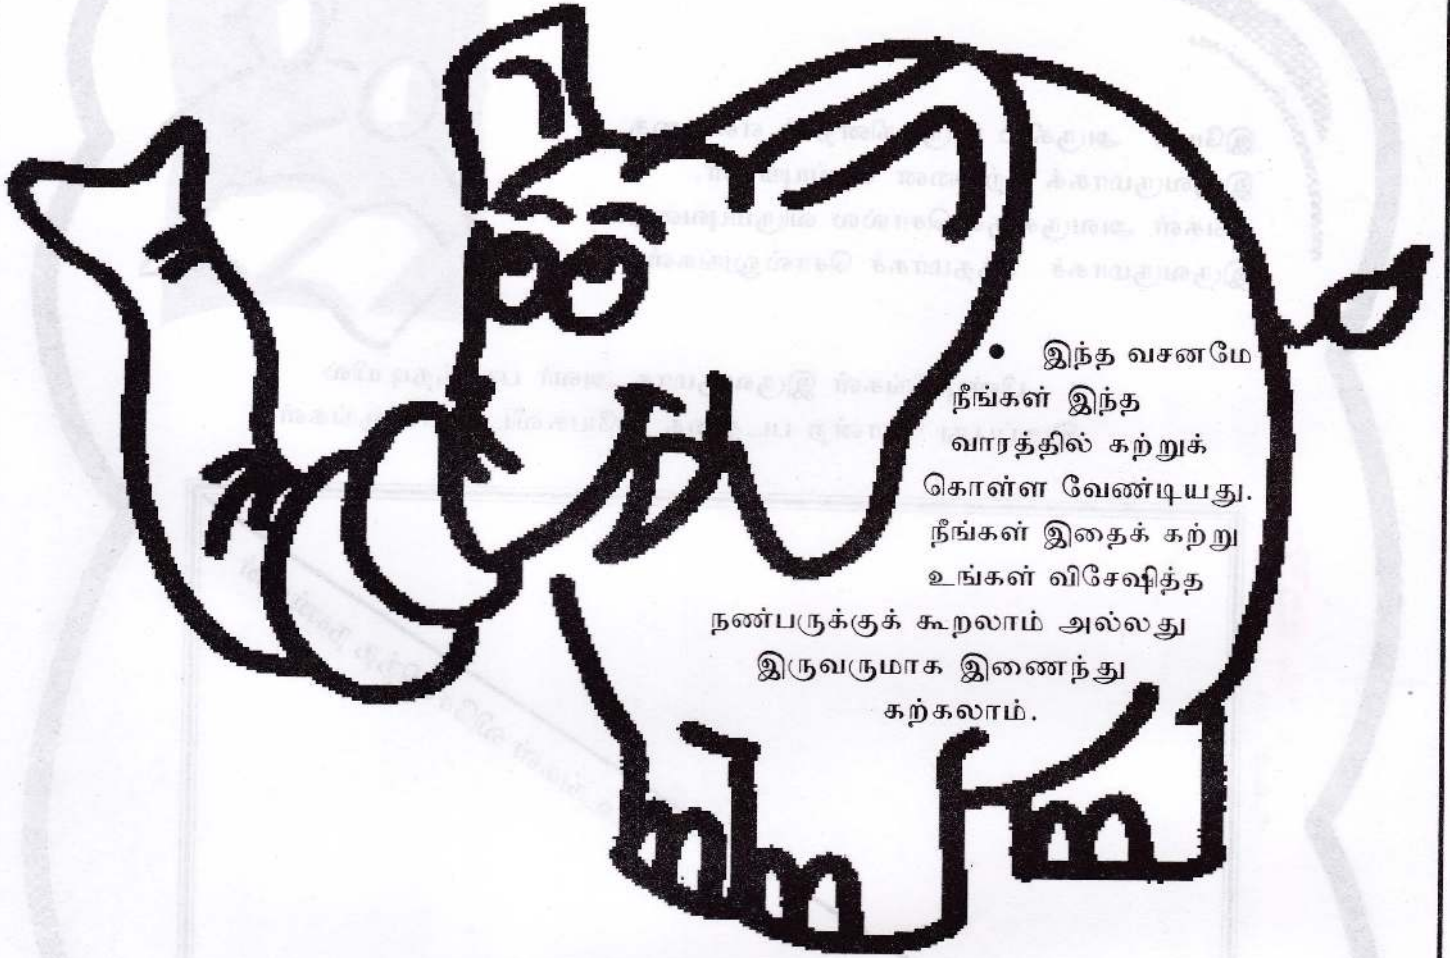 • இந்த வசனமே
நீங்கள் இந்த
வாரத்தில் கற்றுக்
கொள்ள வேண்டியது.
நீங்கள் இதைக் கற்று
உங்கள் விசேஷித்த
நண்பருக்குக் கூறலாம் அல்லது
இருவருமாக இணைந்து
கற்கலாம்.